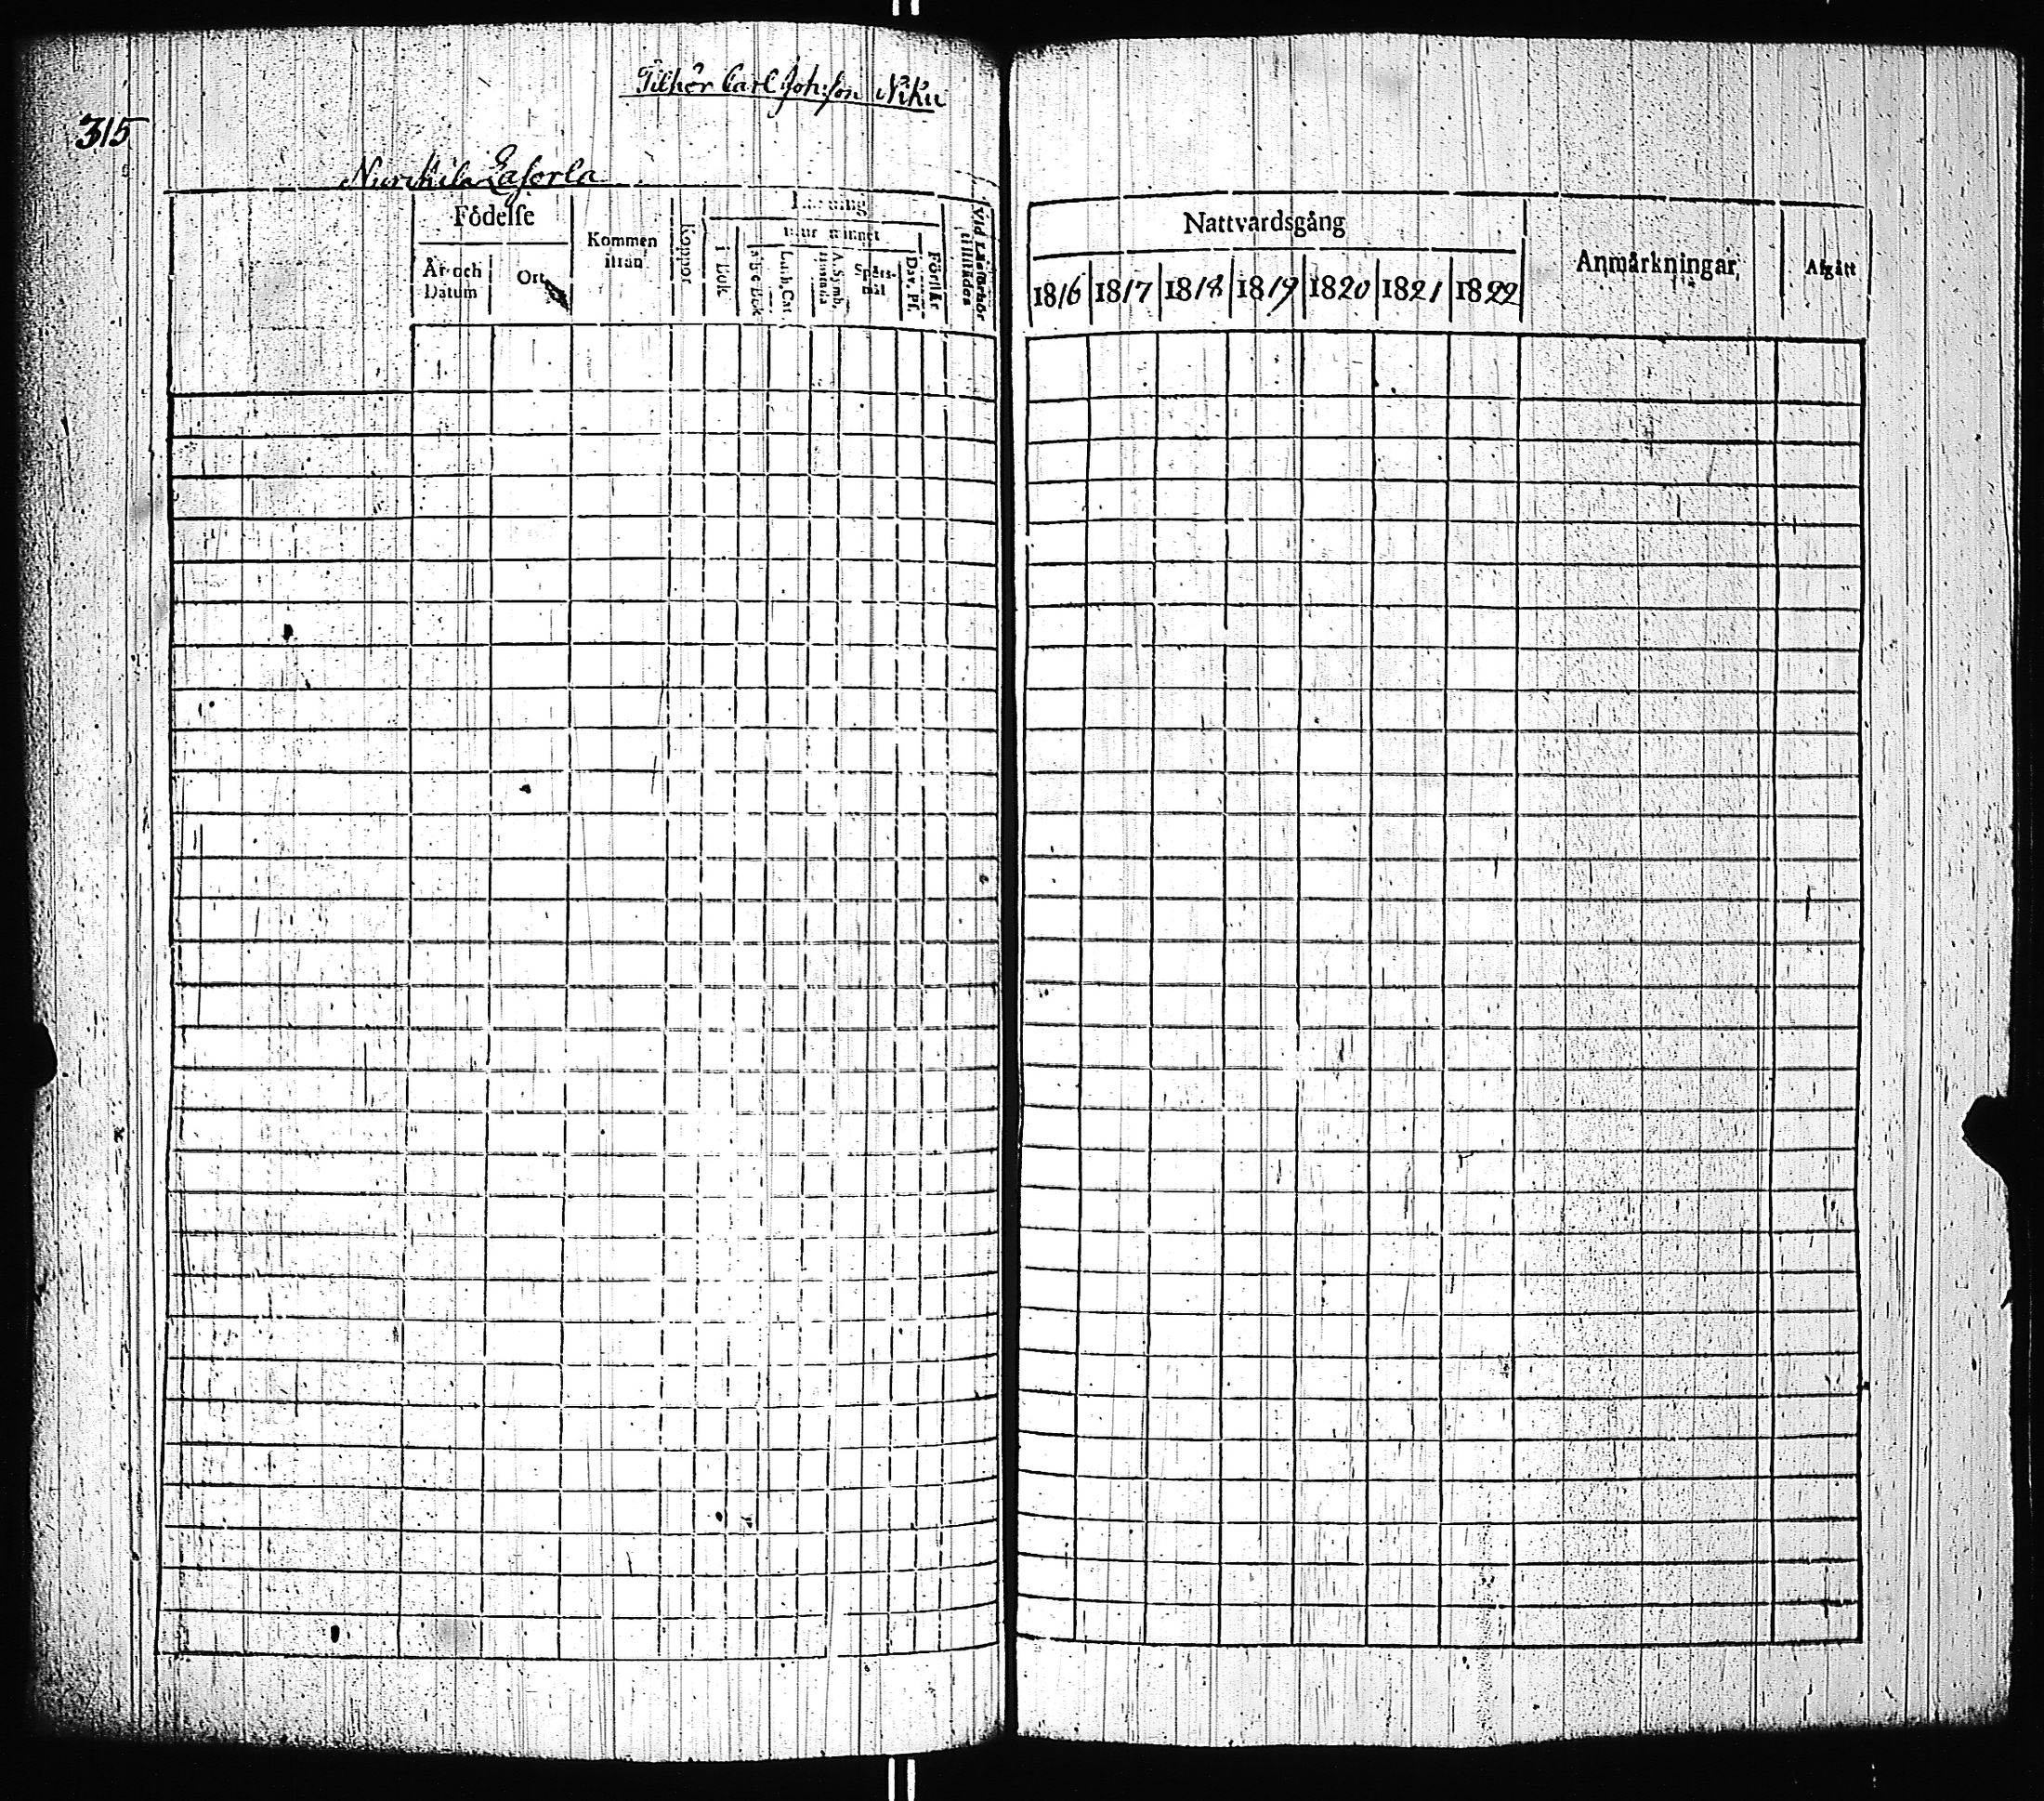 Tilhör Carl Johsson Niku
315
Nurkila Laserla
Födelse
År och Datum
Ort
Kommen ifrån
Koppor
Läsning
i Bok
utur minnet
Luth. Cat.
A. Symb.
Spårs-mål
Dav. Ps.
Förstår
Vid Läsförhör tillstädes
Nattvardsgång
1816 1817 1818 1819 1820 1821 1822
Anmärkningar
Afgått